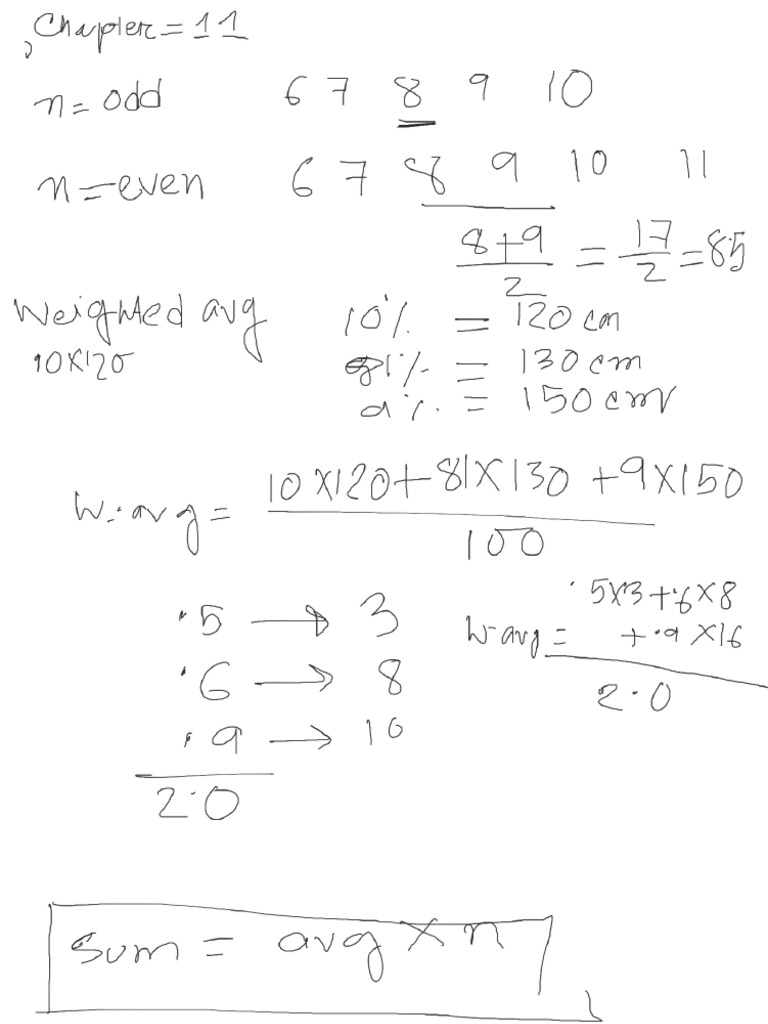 Chapter = 11
n = odd 6 7 8 9 10
n = even 6 7 8 9 10 11
8+9/2 = 17/2 = 8.5
Weighted avg 10% = 120 cm
10x120 81% = 130 cm
9%. = 150 cm
W. avg = 10x120+81x130+9x150
100
.5 → 3 .5x3+.6x8
W avg = +.9x16
.6 → 8 2.0
.9 → 10
2.0
Sum = avg x n